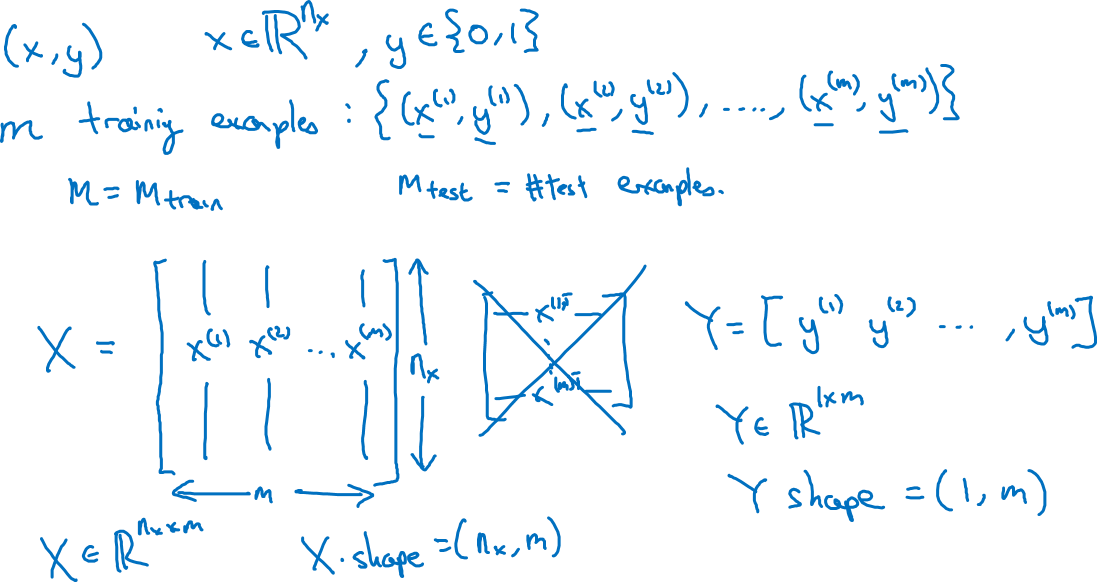 (x, y) x ∈ ℝ^{n_x}, y ∈ {0, 1}
m training examples : {(x^{(1)}, y^{(1)}), (x^{(2)}, y^{(2)}), ....., (x^{(m)}, y^{(m)})}
M = M_{train} M_{test} = #test examples.
X = [x^{(1)} x^{(2)} ... x^{(m)}] n_x
x^{(1)T}
x^{(m)T}
Y = [y^{(1)} y^{(2)} ... , y^{(m)}]
m
Y ∈ ℝ^{1×m}
Y shape = (1, m)
X ∈ ℝ^{n_x × m} X.shape = (n_x, m)